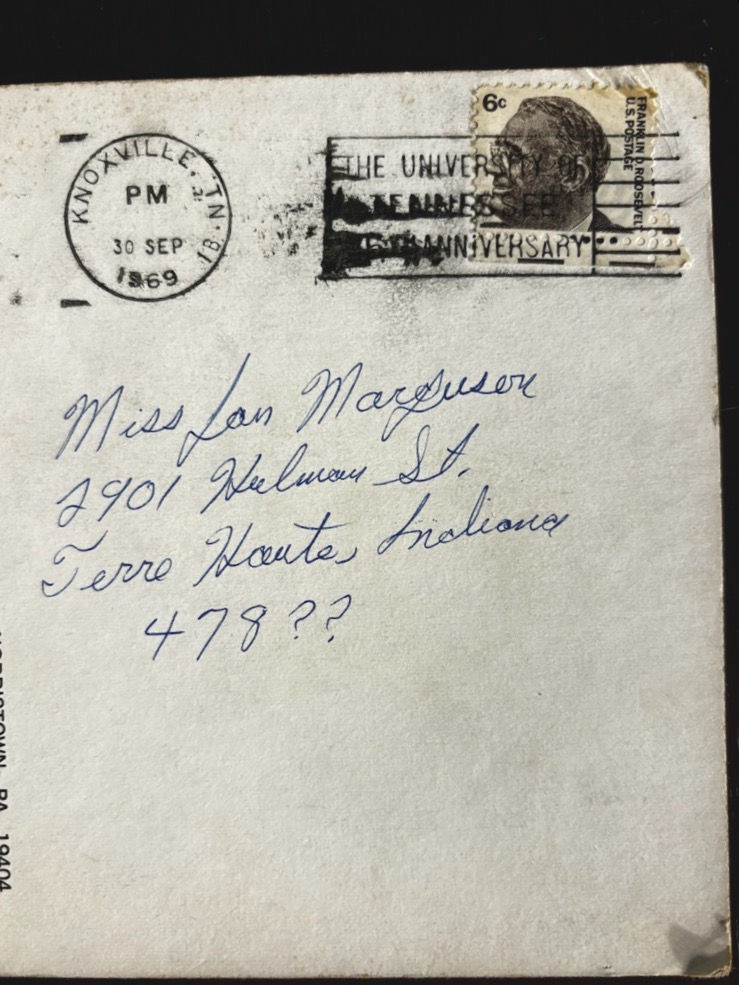 KNOXVILLE, TN.
PM
30 SEP
1969
THE UNIVERSITY OF
TENNESSEE
ANNIVERSARY
6c
FRANKLIN D. ROOSEVELT
U.S. POSTAGE
Miss Jan Marguson
2901 Hulman St.
Terre Haute, Indiana
478??
NORRISTOWN, PA 19404